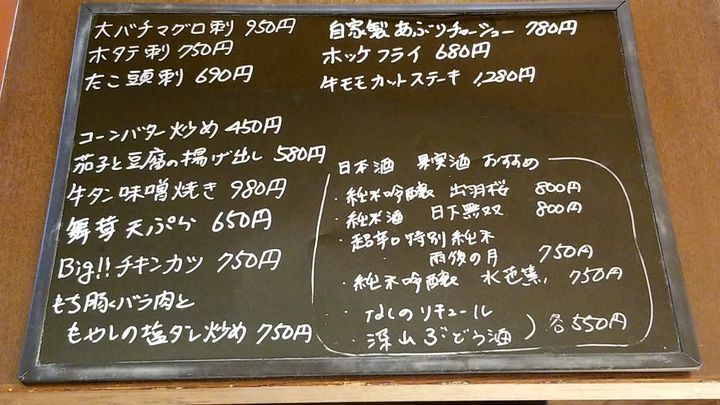 大バチマグロ刺 950円
ホタテ刺 750円
たこ頭刺 690円
コーンバター炒め 450円
茄子と豆腐の揚げ出し 580円
牛タン味噌焼き 980円
舞茸天ぷら 650円
Big!!チキンカツ 750円
もち豚バラ肉と
もやしの塩ダレ炒め 750円
自家製あぶりチャーシュー 780円
ホッケフライ 680円
牛モモカットステーキ 1,280円
日本酒 果実酒 おすすめ
・純米吟醸 出羽桜 800円
・純米酒 日下無双 800円
・超辛口特別純米
雨後の月 750円
・純米吟醸 水芭蕉 750円
・のリキュール
・深山ぶどう酒 各550円